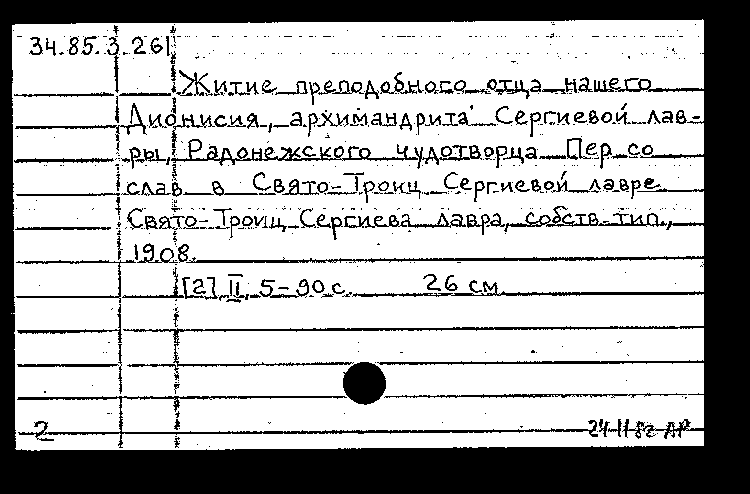 34.85.3.261
Житие преподобного отца нашего
Дионисия, архимандрита Сергиевой лав-
ры, Радонежского чудотворца. Пер со
слав. в Свято-Троиц Сергиевой лавре.
Свято-Троиц Сергиева лавра, собств. тип.,
1908.
[2], II, 5-90 с. 26 см.
2
24 II 82 АР